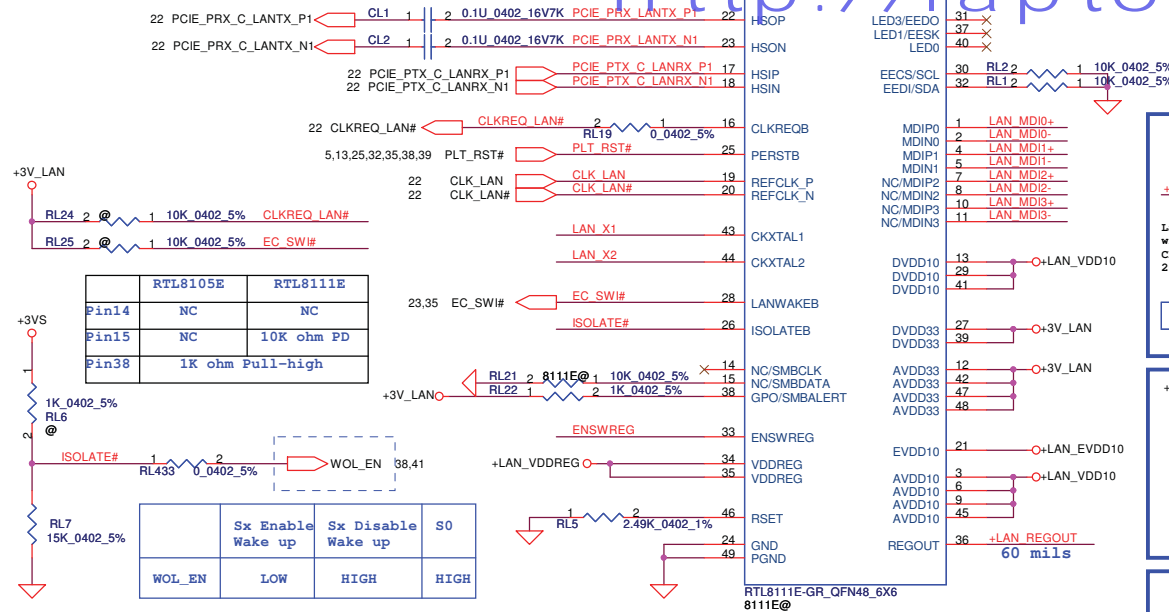 http://lapto
22 PCIE_PRX_C_LANTX_P1 CL1 1 2 0.1U_0402_16V7K PCIE_PRX_LANTX_P1 22 HSOP
22 PCIE_PRX_C_LANTX_N1 CL2 1 2 0.1U_0402_16V7K PCIE_PRX_LANTX_N1 23 HSON
22 PCIE_PTX_C_LANRX_P1 PCIE_PTX_C_LANRX_P1 17 HSIP
22 PCIE_PTX_C_LANRX_N1 PCIE_PTX_C_LANRX_N1 18 HSIN
22 CLKREQ_LAN# CLKREQ_LAN# 2 1 16 CLKREQB
RL19 0_0402_5%
5,13,25,32,35,38,39 PLT_RST# PLT_RST# 25 PERSTB
22 CLK_LAN CLK_LAN 19 REFCLK_P
22 CLK_LAN# CLK_LAN# 20 REFCLK_N
LAN_X1 43 CKXTAL1
LAN_X2 44 CKXTAL2
23,35 EC_SWI# EC_SWI# 28 LANWAKEB
ISOLATE# 26 ISOLATEB
14 NC/SMBCLK
RL21 2 8111E@ 1 10K_0402_5% 15 NC/SMBDATA
+3V_LAN RL22 1 2 1K_0402_5% 38 GPO/SMBALERT
ENSWREG 33 ENSWREG
+LAN_VDDREG 34 VDDREG
35 VDDREG
1 2 46 RSET
RL5 2.49K_0402_1%
24 GND
49 PGND
RTL8111E-GR_QFN48_6X6
8111E@
LED3/EEDO 31
LED1/EESK 37
LED0 40
EECS/SCL 30 RL2 2 1 10K_0402_5%
EEDI/SDA 32 RL1 2 1 10K_0402_5%
MDIP0 1 LAN_MDI0+
MDIN0 2 LAN_MDI0-
MDIP1 4 LAN_MDI1+
MDIN1 5 LAN_MDI1-
NC/MDIP2 7 LAN_MDI2+
NC/MDIN2 8 LAN_MDI2-
NC/MDIP3 10 LAN_MDI3+
NC/MDIN3 11 LAN_MDI3-
DVDD10 13 +LAN_VDD10
DVDD10 29
DVDD10 41
DVDD33 27 +3V_LAN
DVDD33 39
AVDD33 12 +3V_LAN
AVDD33 42
AVDD33 47
AVDD33 48
EVDD10 21 +LAN_EVDD10
AVDD10 3 +LAN_VDD10
AVDD10 6
AVDD10 9
AVDD10 45
REGOUT 36 +LAN_REGOUT
60 mils
+3V_LAN
RL24 2 @ 1 10K_0402_5% CLKREQ_LAN#
RL25 2 @ 1 10K_0402_5% EC_SWI#
RTL8105E RTL8111E
Pin14 NC NC
Pin15 NC 10K ohm PD
Pin38 1K ohm Pull-high
+3VS
1
1K_0402_5%
RL6
@
2
ISOLATE# 1 2 WOL_EN 38,41
RL433 0_0402_5%
RL7
15K_0402_5%
Sx Enable Wake up Sx Disable Wake up S0
WOL_EN LOW HIGH HIGH